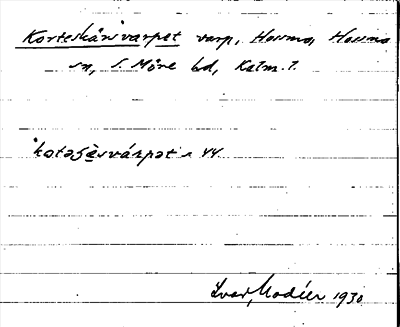 Korteskärsvarpet varp, Hossmo, Hossmo
sn, S. Möre hd, Kalm. l.
Ivar Modéer 1930